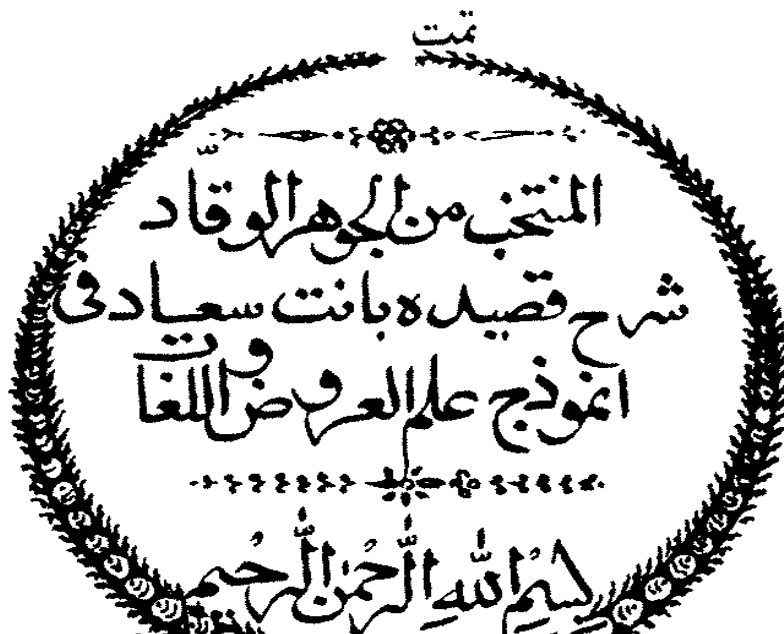 تمت
المنتخب من الجوهر الوقّاد
شرح قصيده بانت سعاد فى
انموذج علم العروض و اللغات
بِسْمِ اللّٰهِ الرَّحْمٰنِ الرَّحِيْمِ